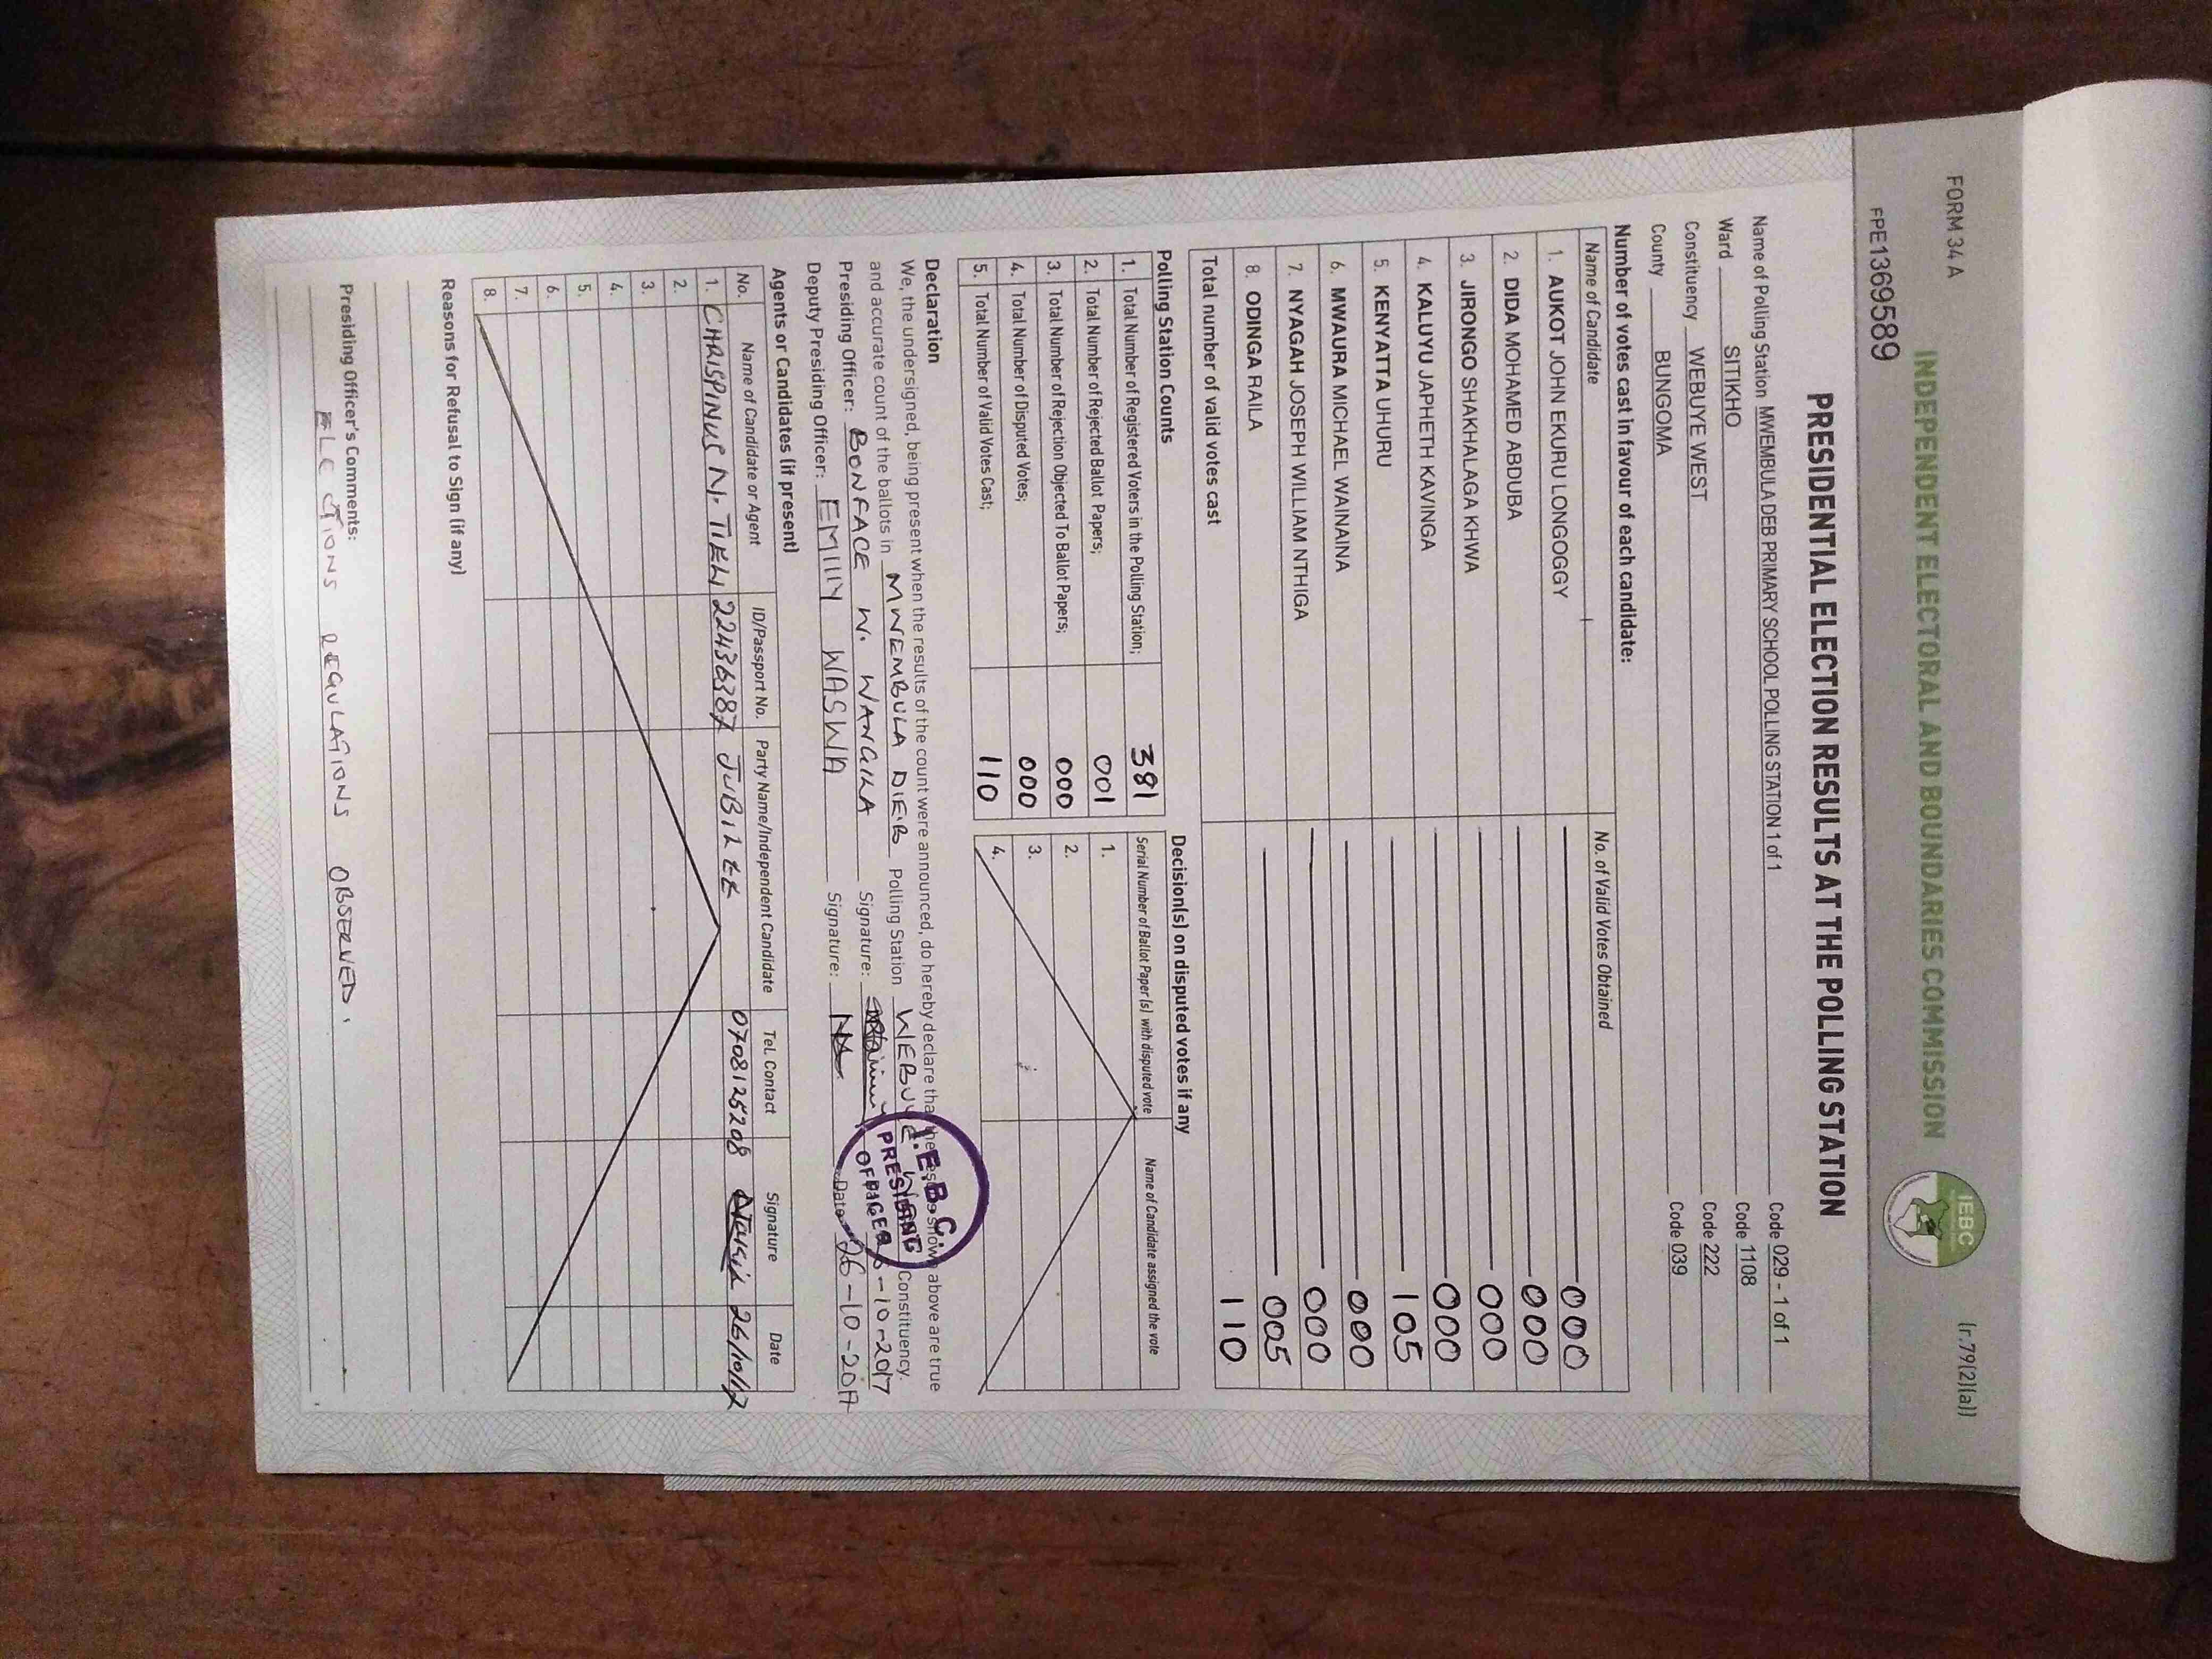 FORM 34 A
(r.79(2)(a))
INDEPENDENT ELECTORAL AND BOUNDARIES COMMISSION
IEBC
FPE1369589
PRESIDENTIAL ELECTION RESULTS AT THE POLLING STATION
Name of Polling Station MWEMBULA DEB PRIMARY SCHOOL POLLING STATION 1 of 1 Code 029 - 1 of 1
Ward SITIKHO Code 1108
Constituency WEBUYE WEST Code 222
County BUNGOMA Code 039
Number of votes cast in favour of each candidate:
Name of Candidate No. of Valid Votes Obtained
1. AUKOT JOHN EKURU LONGOGGY 000
2. DIDA MOHAMED ABDUBA 000
3. JIRONGO SHAKHALAGA KHWA 000
4. KALUYU JAPHETH KAVINGA 000
5. KENYATTA UHURU 105
6. MWAURA MICHAEL WAINAINA 000
7. NYAGAH JOSEPH WILLIAM NTHIGA 000
8. ODINGA RAILA 005
Total number of valid votes cast 110
Polling Station Counts
1. Total Number of Registered Voters in the Polling Station; 381
2. Total Number of Rejected Ballot Papers; 001
3. Total Number of Rejection Objected To Ballot Papers; 000
4. Total Number of Disputed Votes; 000
5. Total Number of Valid Votes Cast; 110
Decision(s) on disputed votes if any
Serial Number of Ballot Paper (s) with disputed vote Name of Candidate assigned the vote
1.
2.
3.
4.
Declaration
We, the undersigned, being present when the results of the count were announced, do hereby declare that the results shown above are true
and accurate count of the ballots in MWEMBULA DEB Polling Station WEBUYE Constituency.
Presiding Officer: BONFACE W. WANGILA Signature: -10-2017
Deputy Presiding Officer: EMILLY WASWA Signature: Date 26-10-2017
I.E.B.C.
PRESIDING
OFFICER
Agents or Candidates (if present)
No. Name of Candidate or Agent ID/Passport No. Party Name/Independent Candidate Tel. Contact Signature Date
1. CHRISPINUS N. 22436387 JUBILEE 0708125208 26/10/17
2.
3.
4.
5.
6.
7.
8.
Reasons for Refusal to Sign (if any)
Presiding Officer's Comments:
ELECTIONS REGULATIONS OBSERVED.